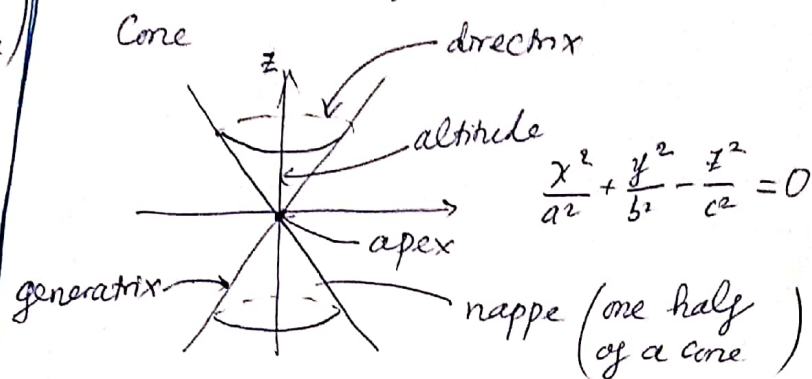 Cone
z
directrix
altitude
x²/a² + y²/b² - z²/c² = 0
apex
generatrix
nappe (one half
of a cone)